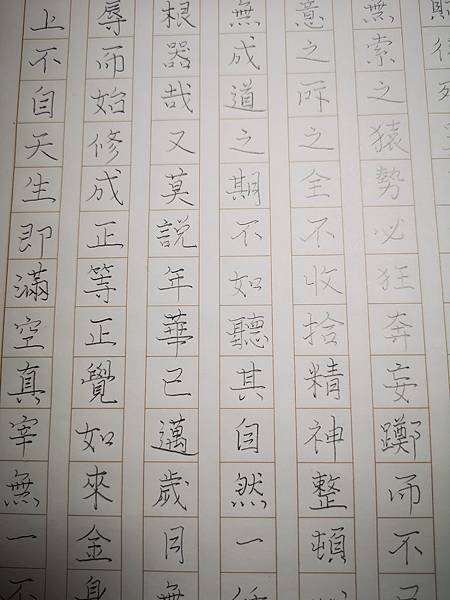 無索之猿勢必狂奔妄躑而不已
意之所之全不收拾精神整頓
無成道之期不如聽其自然一
根器哉又莫說年華已邁歲月無
辱而始修成正等正覺如來金身
上不自天生即滿空真宰無一不